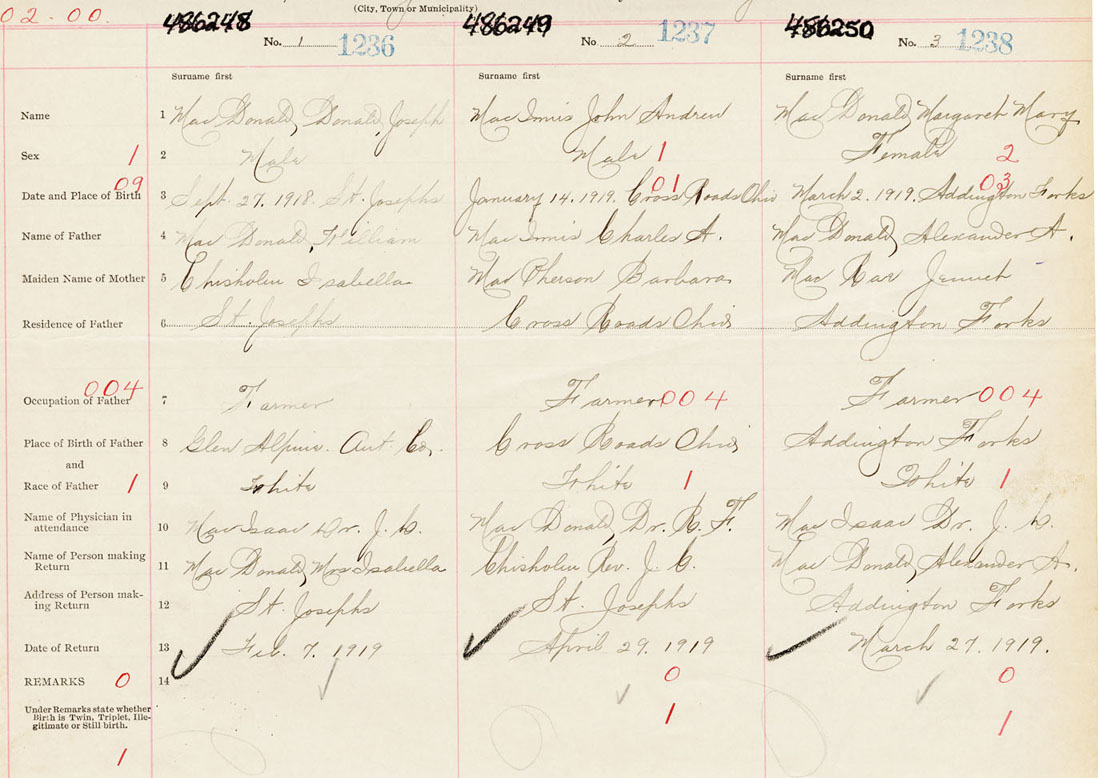 (City, Town or Municipality)
02-00.
486248 486249 486250
No. 1 1236 No. 2 1237 No. 3 1238
Surname first Surname first Surname first
Name 1 MacDonald, Donald, Joseph MacInnis John Andrew MacDonald, Margaret Mary
Sex 1 2 Male Male 1 Female 2
09 01 03
Date and Place of Birth 3 Sept. 27. 1918 St. Josephs January 14. 1919. Cross Roads Ohio March 2. 1919. Addington Forks
Name of Father 4 MacDonald, William MacInnis Charles A. MacDonald, Alexander A.
Maiden Name of Mother 5 Chisholm Isabella MacPherson Barbara MacRae Jennet
Residence of Father 6 St. Josephs Cross Roads Ohio Addington Forks
004
Occupation of Father 7 Farmer Farmer 004 Farmer 004
Place of Birth of Father 8 Glen Alpine. Ant. Co. Cross Roads Ohio Addington Forks
and
Race of Father 1 9 White White 1 White 1
Name of Physician in
attendance 10 MacIsaac Dr. J. L. MacDonald, Dr. R. F. MacIsaac Dr. J. L.
Name of Person making
Return 11 MacDonald, Mrs Isabella Chisholm Rev. J. C. MacDonald, Alexander A.
Address of Person mak-
ing Return 12 St. Josephs St. Josephs Addington Forks
Date of Return 13 Feb. 7. 1919 April 29. 1919 March 27. 1919.
REMARKS 0 14 0 0
Under Remarks state whether
Birth is Twin, Triplet, Ille-
gitimate or Still birth.
1 1 1